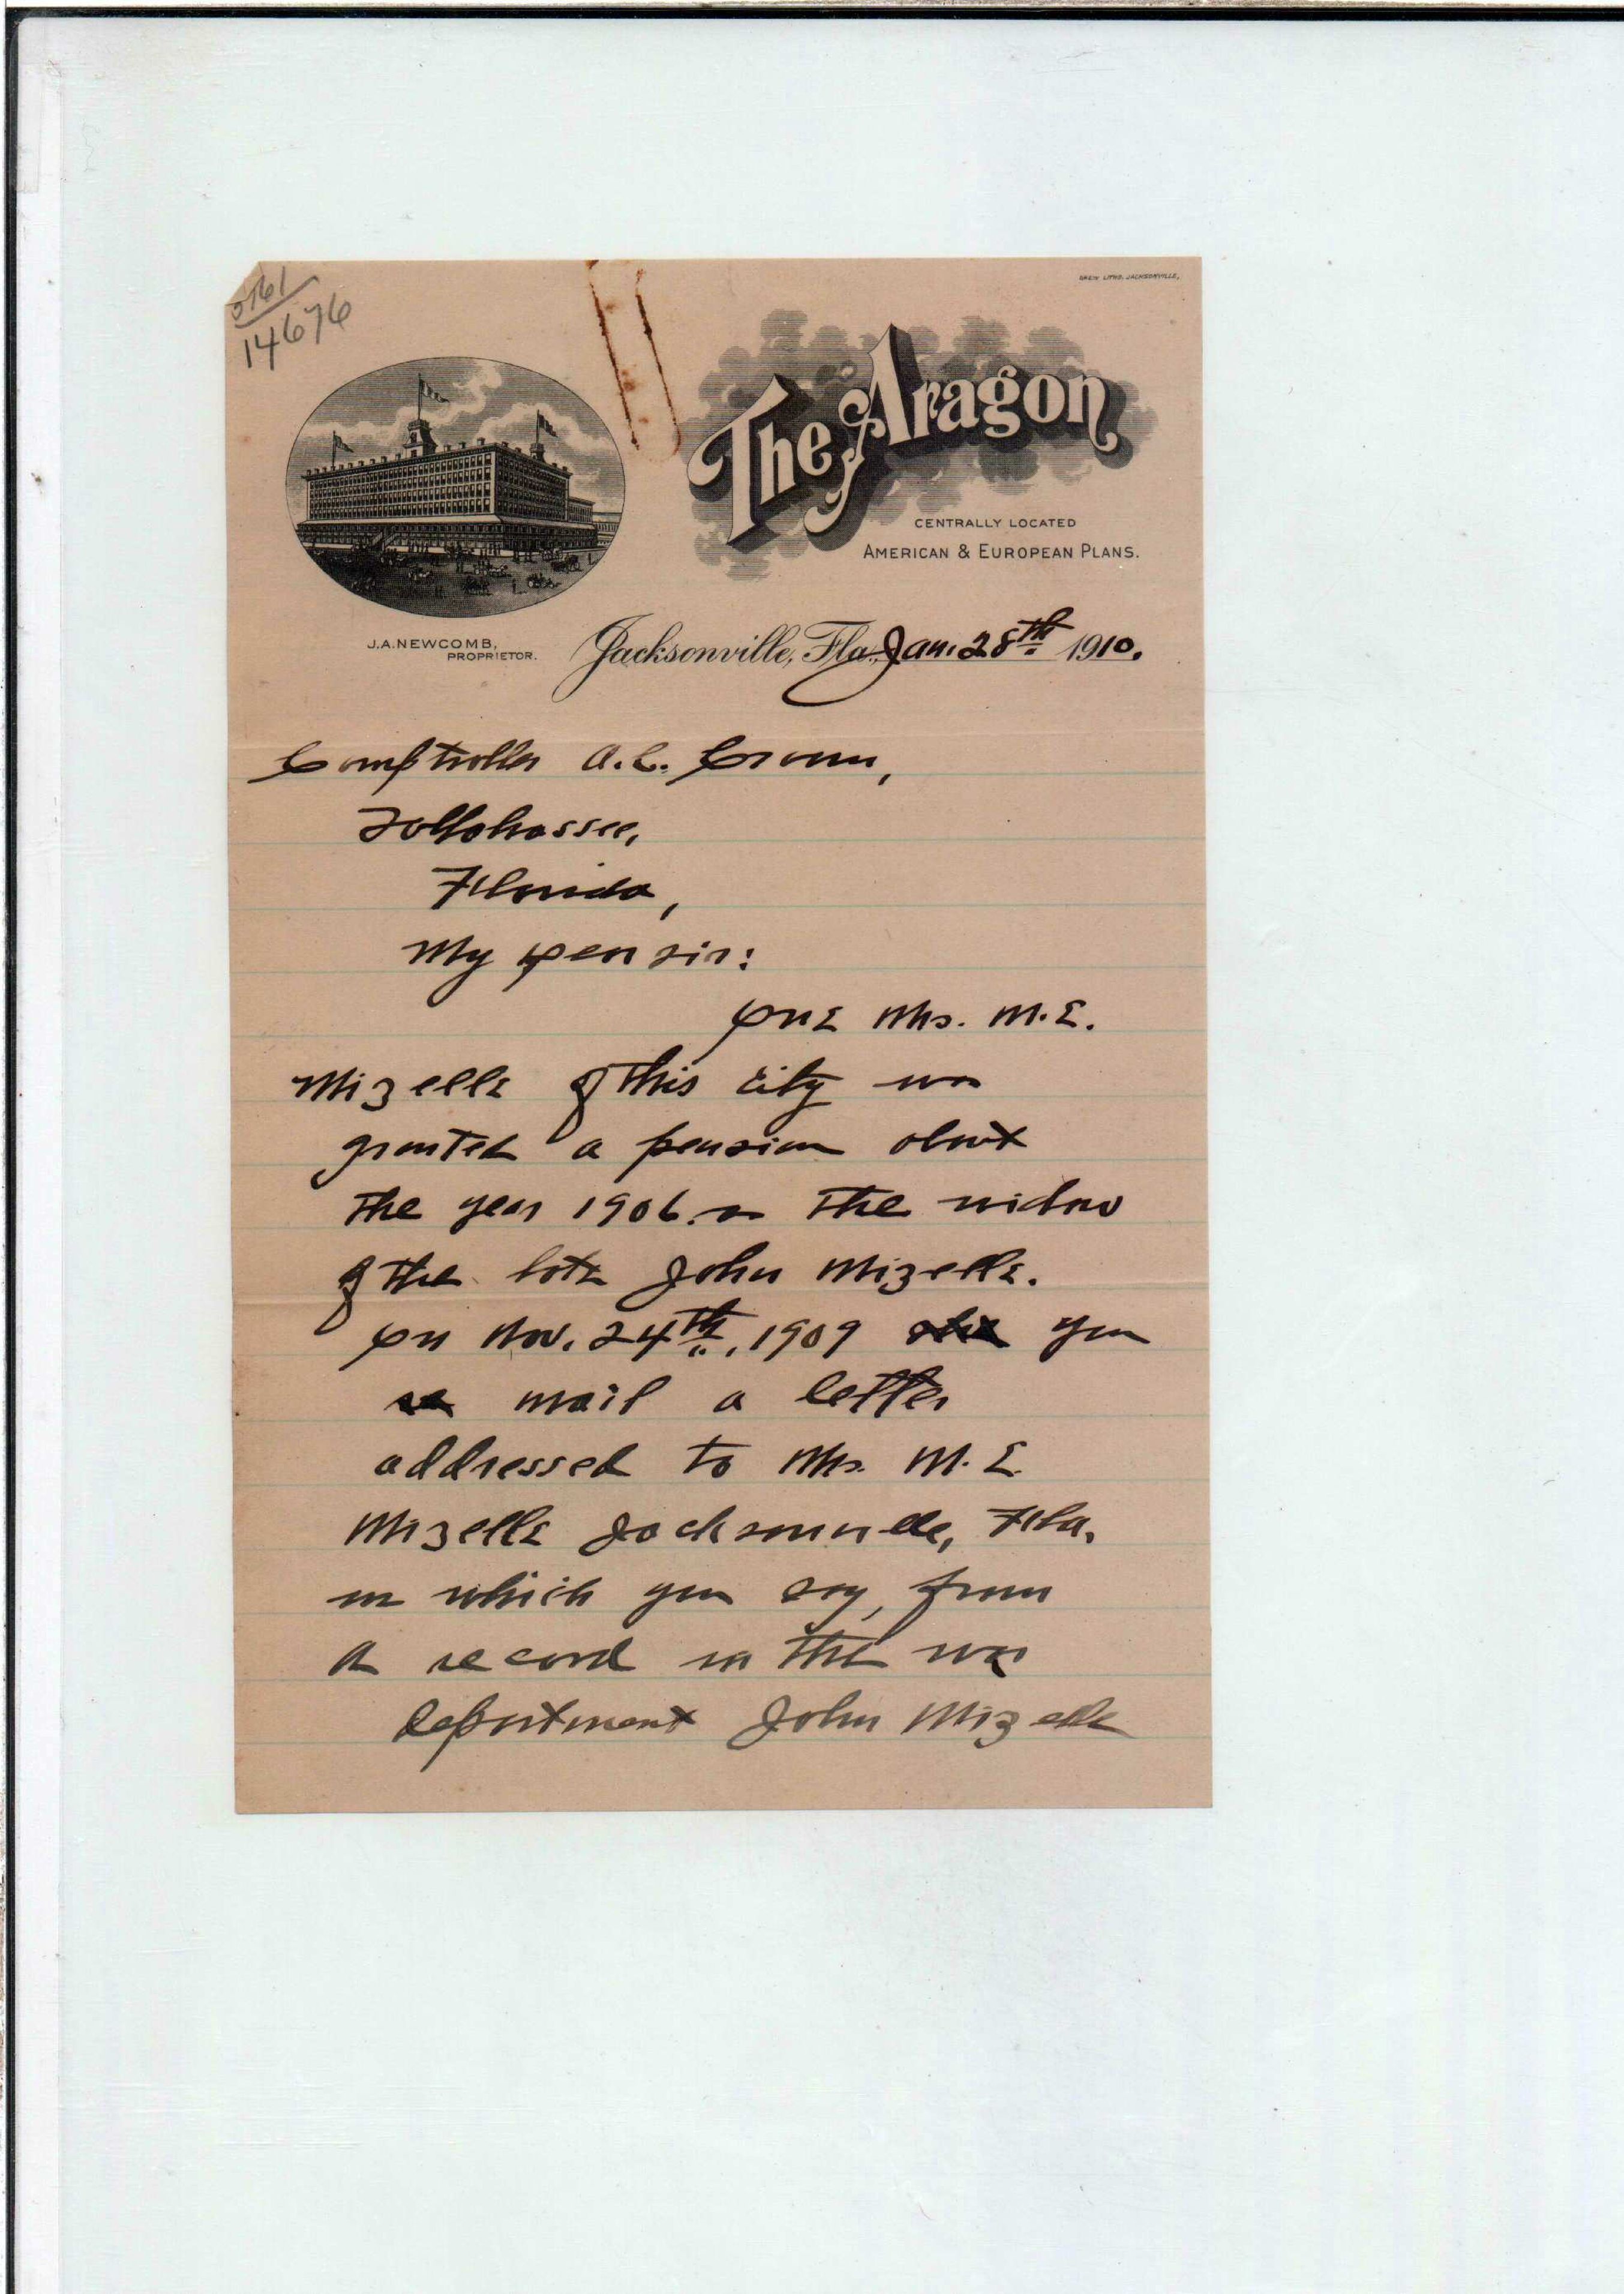 14676
DREW LITHO. JACKSONVILLE,
The Aragon
CENTRALLY LOCATED
AMERICAN & EUROPEAN PLANS.
J.A. NEWCOMB,
PROPRIETOR.
Jacksonville, Fla. Jan. 28th 1910.
Comptroller A.C. Croom,
Tallahassee,
Florida,
My Dear Sir:
One Mrs. M.E.
Mizelle of this city was
granted a pension about
the year 1906 as the widow
of the late John Mizelle.
On Nov. 24th, 1909 you
mail a letter
addressed to Mrs. M.E.
Mizelle Jacksonville, Fla.
in which you say, from
a record in the war
Department John Mizelle